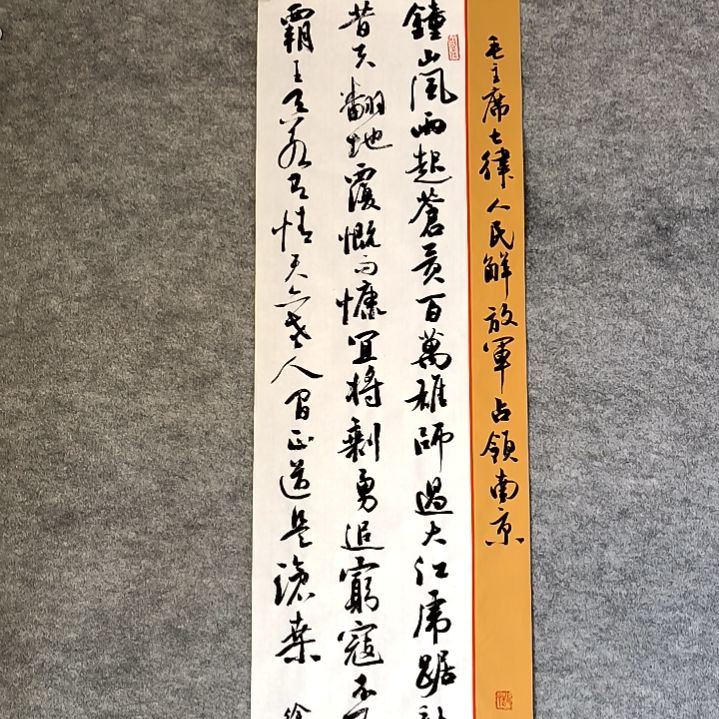 毛主席七律人民解放軍占領南京
鍾山風雨起蒼黄百萬雄師過大江虎踞
昔天翻地覆慨而慷宜將剩勇追窮寇不
霸王天若有情天亦老人間正道是滄桑
徐